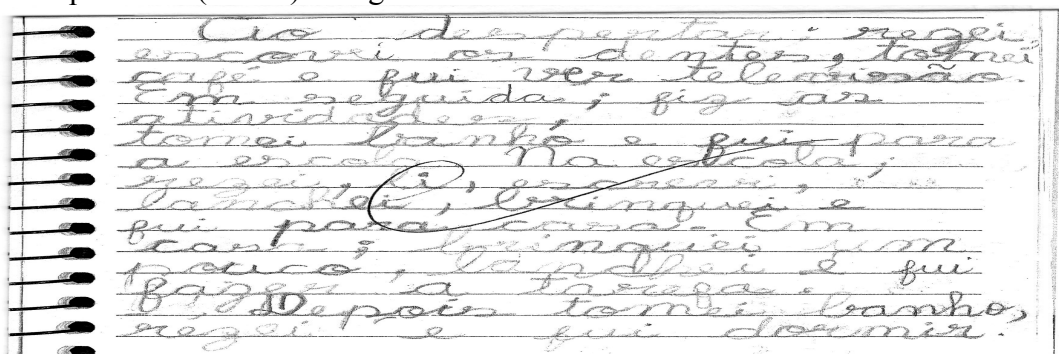 Ao despertar rezei,
escovei os dentes, tomei
café e fui ver televisão.
Em seguida, fiz as
atividades,
tomei banho e fui para
a escola. Na escola,
rezei, li, escrevi,
lanchei, brinquei e
fui para casa. Em
casa, brinquei um
pouco, lanchei e fui
fazer a tarefa.
Depois tomei banho,
rezei e fui dormir.